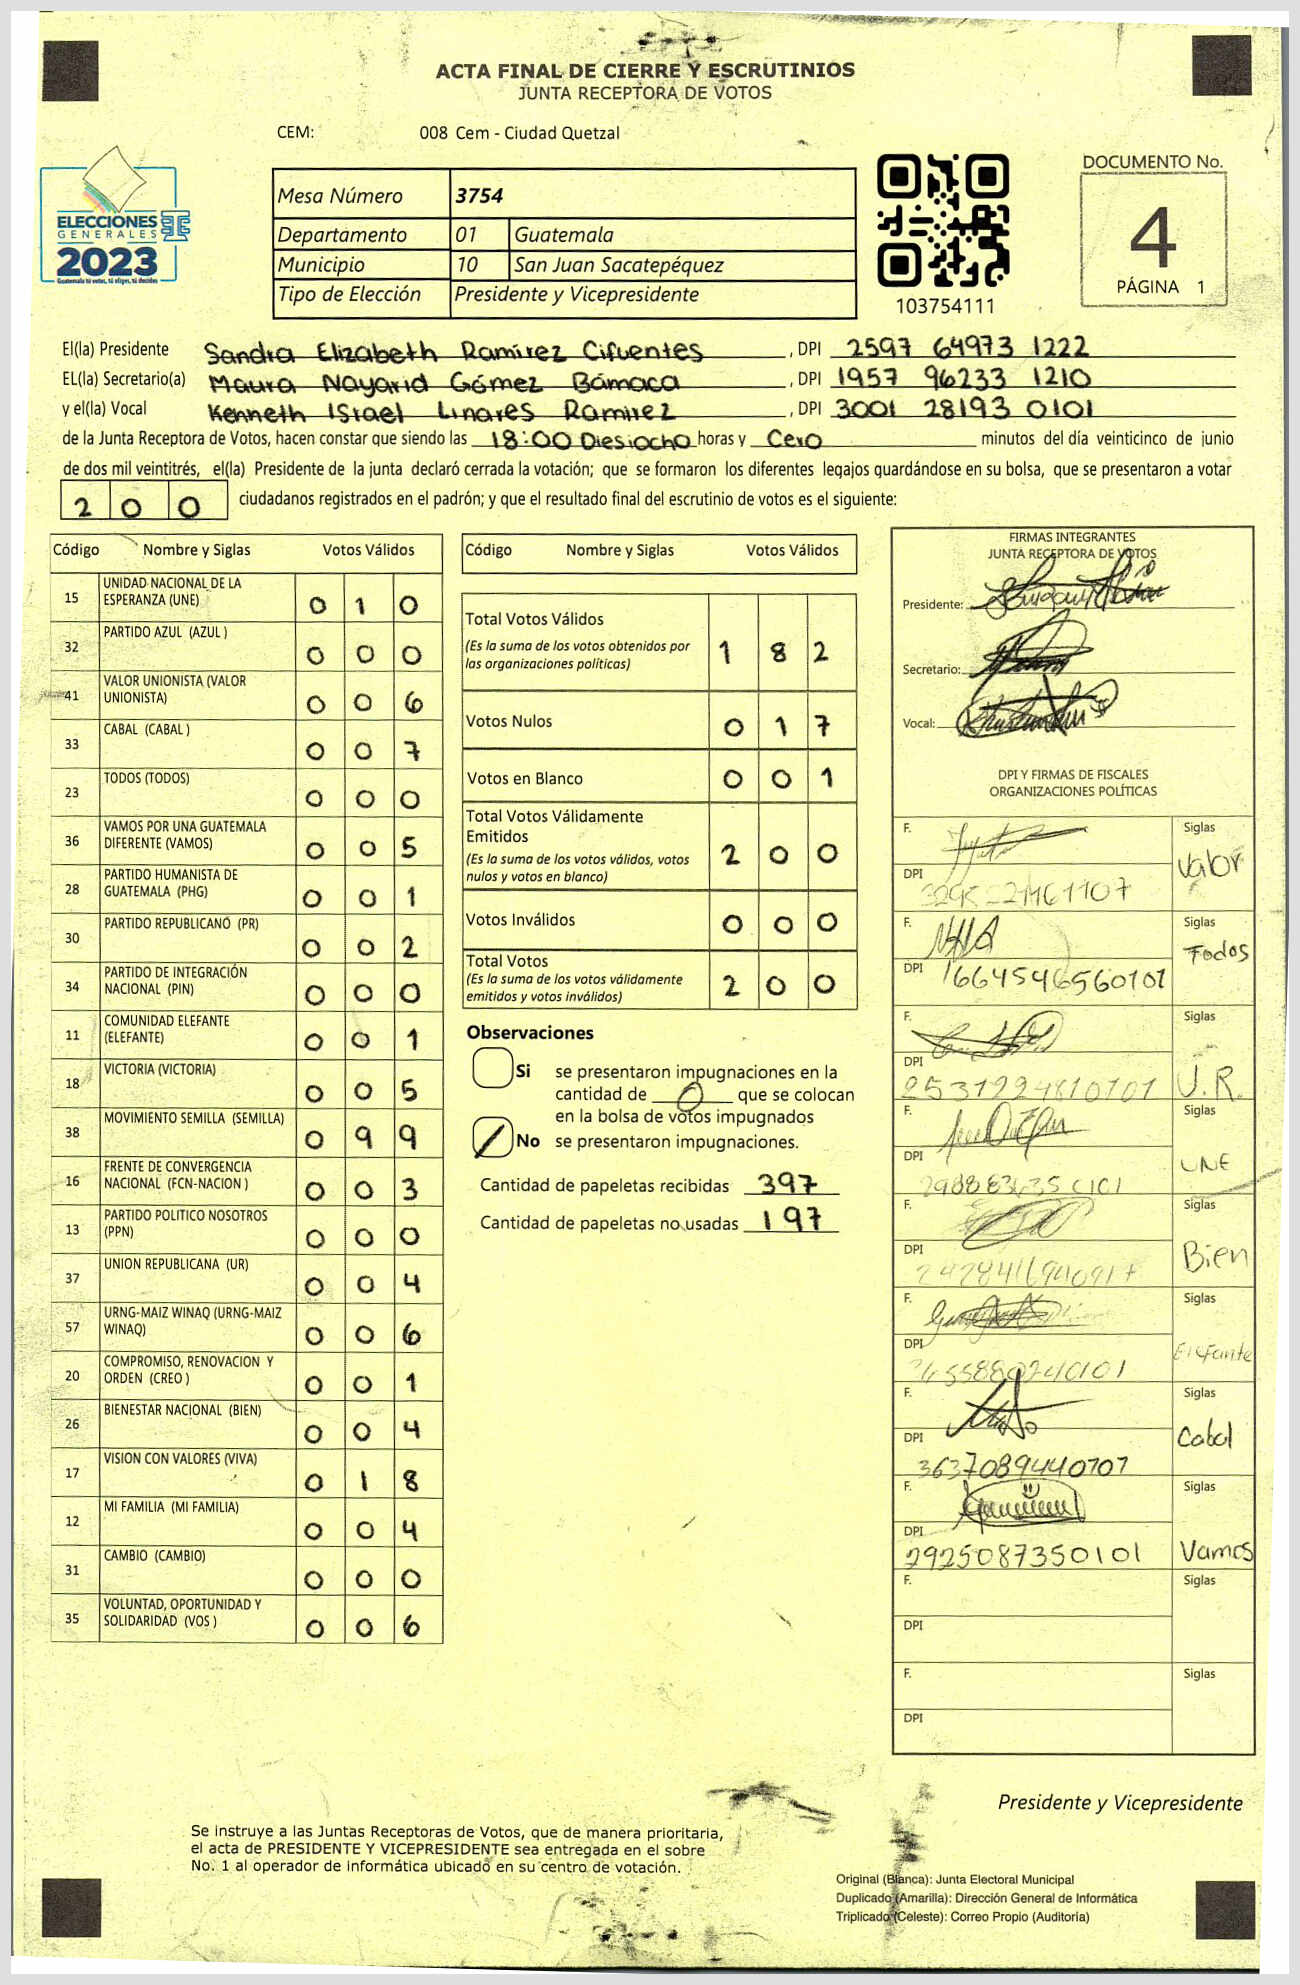 ACTA FINAL DE CIERRE Y ESCRUTINIOS
JUNTA RECEPTORA DE VOTOS
CEM: 008 Cem - Ciudad Quetzal
ELECCIONES
GENERALES
2023
Guatemala tú votas, tú eliges, tú decides
Mesa Número 3754
Departamento 01 Guatemala
Municipio 10 San Juan Sacatepéquez
Tipo de Elección Presidente y Vicepresidente
103754111
DOCUMENTO No.
4
PÁGINA 1
El(la) Presidente Sandra Elizabeth Ramirez Cifuentes , DPI 2597 64973 1222
EL(la) Secretario(a) Maura Nayarid Gómez Bámaca , DPI 1957 96233 1210
y el(la) Vocal Kenneth Israel Linares Ramirez , DPI 3001 28193 0101
de la Junta Receptora de Votos, hacen constar que siendo las 18:00 Diesiocho horas y Cero minutos del día veinticinco de junio
de dos mil veintitrés, el(la) Presidente de la junta declaró cerrada la votación; que se formaron los diferentes legajos guardándose en su bolsa, que se presentaron a votar
200 ciudadanos registrados en el padrón; y que el resultado final del escrutinio de votos es el siguiente:
Código Nombre y Siglas Votos Válidos
15 UNIDAD NACIONAL DE LA ESPERANZA (UNE) 0 1 0
32 PARTIDO AZUL (AZUL ) 0 0 0
41 VALOR UNIONISTA (VALOR UNIONISTA) 0 0 6
33 CABAL (CABAL ) 0 0 7
23 TODOS (TODOS) 0 0 0
36 VAMOS POR UNA GUATEMALA DIFERENTE (VAMOS) 0 0 5
28 PARTIDO HUMANISTA DE GUATEMALA (PHG) 0 0 1
30 PARTIDO REPUBLICANO (PR) 0 0 2
34 PARTIDO DE INTEGRACIÓN NACIONAL (PIN) 0 0 0
11 COMUNIDAD ELEFANTE (ELEFANTE) 0 0 1
18 VICTORIA (VICTORIA) 0 0 5
38 MOVIMIENTO SEMILLA (SEMILLA) 0 9 9
16 FRENTE DE CONVERGENCIA NACIONAL (FCN-NACION ) 0 0 3
13 PARTIDO POLITICO NOSOTROS (PPN) 0 0 0
37 UNION REPUBLICANA (UR) 0 0 4
57 URNG-MAIZ WINAQ (URNG-MAIZ WINAQ) 0 0 6
20 COMPROMISO, RENOVACION Y ORDEN (CREO ) 0 0 1
26 BIENESTAR NACIONAL (BIEN) 0 0 4
17 VISION CON VALORES (VIVA) 0 1 8
12 MI FAMILIA (MI FAMILIA) 0 0 4
31 CAMBIO (CAMBIO) 0 0 0
35 VOLUNTAD, OPORTUNIDAD Y SOLIDARIDAD (VOS ) 0 0 6
Código Nombre y Siglas Votos Válidos
Total Votos Válidos
(Es la suma de los votos obtenidos por las organizaciones políticas) 1 8 2
Votos Nulos 0 1 7
Votos en Blanco 0 0 1
Total Votos Válidamente Emitidos
(Es la suma de los votos válidos, votos nulos y votos en blanco) 2 0 0
Votos Inválidos 0 0 0
Total Votos
(Es la suma de los votos válidamente emitidos y votos inválidos) 2 0 0
Observaciones
Si se presentaron impugnaciones en la
cantidad de 0 que se colocan
en la bolsa de votos impugnados
No se presentaron impugnaciones.
Cantidad de papeletas recibidas 397
Cantidad de papeletas no usadas 197
FIRMAS INTEGRANTES
JUNTA RECEPTORA DE VOTOS
Presidente:
Secretario:
Vocal:
DPI Y FIRMAS DE FISCALES
ORGANIZACIONES POLÍTICAS
F. Siglas
Valor
DPI
F. Siglas
Todos
DPI 1664546560101
F. Siglas
U.R.
DPI 2531224810101
F. Siglas
UNE
DPI
F. Siglas
Bien
DPI
F. Siglas
Elefante
DPI
F. Siglas
Cabal
DPI 3637089440101
F. Siglas
Vamos
DPI 2925087350101
F. Siglas
DPI
F. Siglas
DPI
Presidente y Vicepresidente
Se instruye a las Juntas Receptoras de Votos, que de manera prioritaria,
el acta de PRESIDENTE Y VICEPRESIDENTE sea entregada en el sobre
No. 1 al operador de informática ubicado en su centro de votación.
Original (Blanca): Junta Electoral Municipal
Duplicado (Amarilla): Dirección General de Informática
Triplicado (Celeste): Correo Propio (Auditoría)